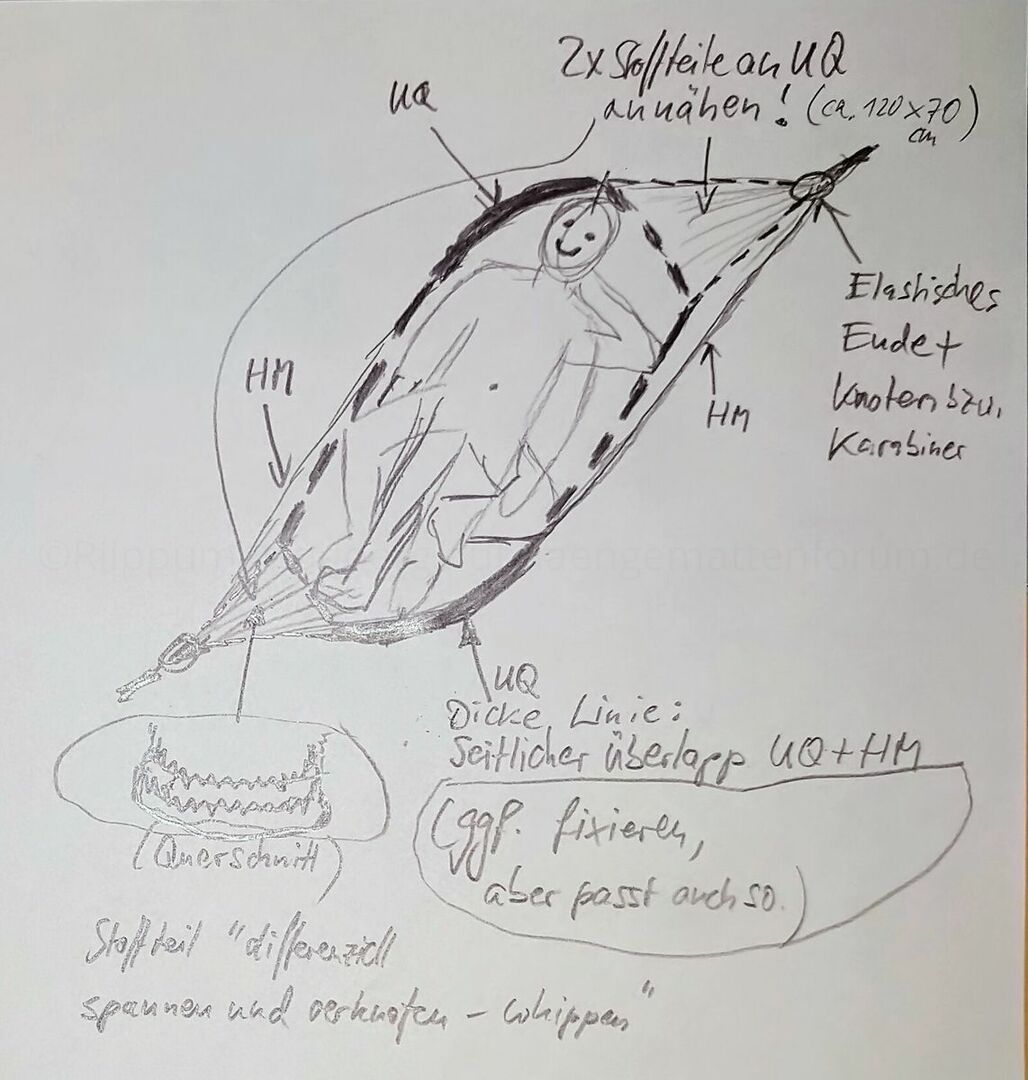 2x Stoffteile an UQ
annähen! (ca. 120x70
cm)
UQ
Elastisches
Ende +
Knoten bzw.
Karabiner
HM
HM
UQ
Dicke Linie:
Seitlicher Überlapp UQ+HM
(ggf. fixieren,
aber passt auch so.)
(Querschnitt)
Stoffteil "differenziell
spannen und verknoten - whippen"